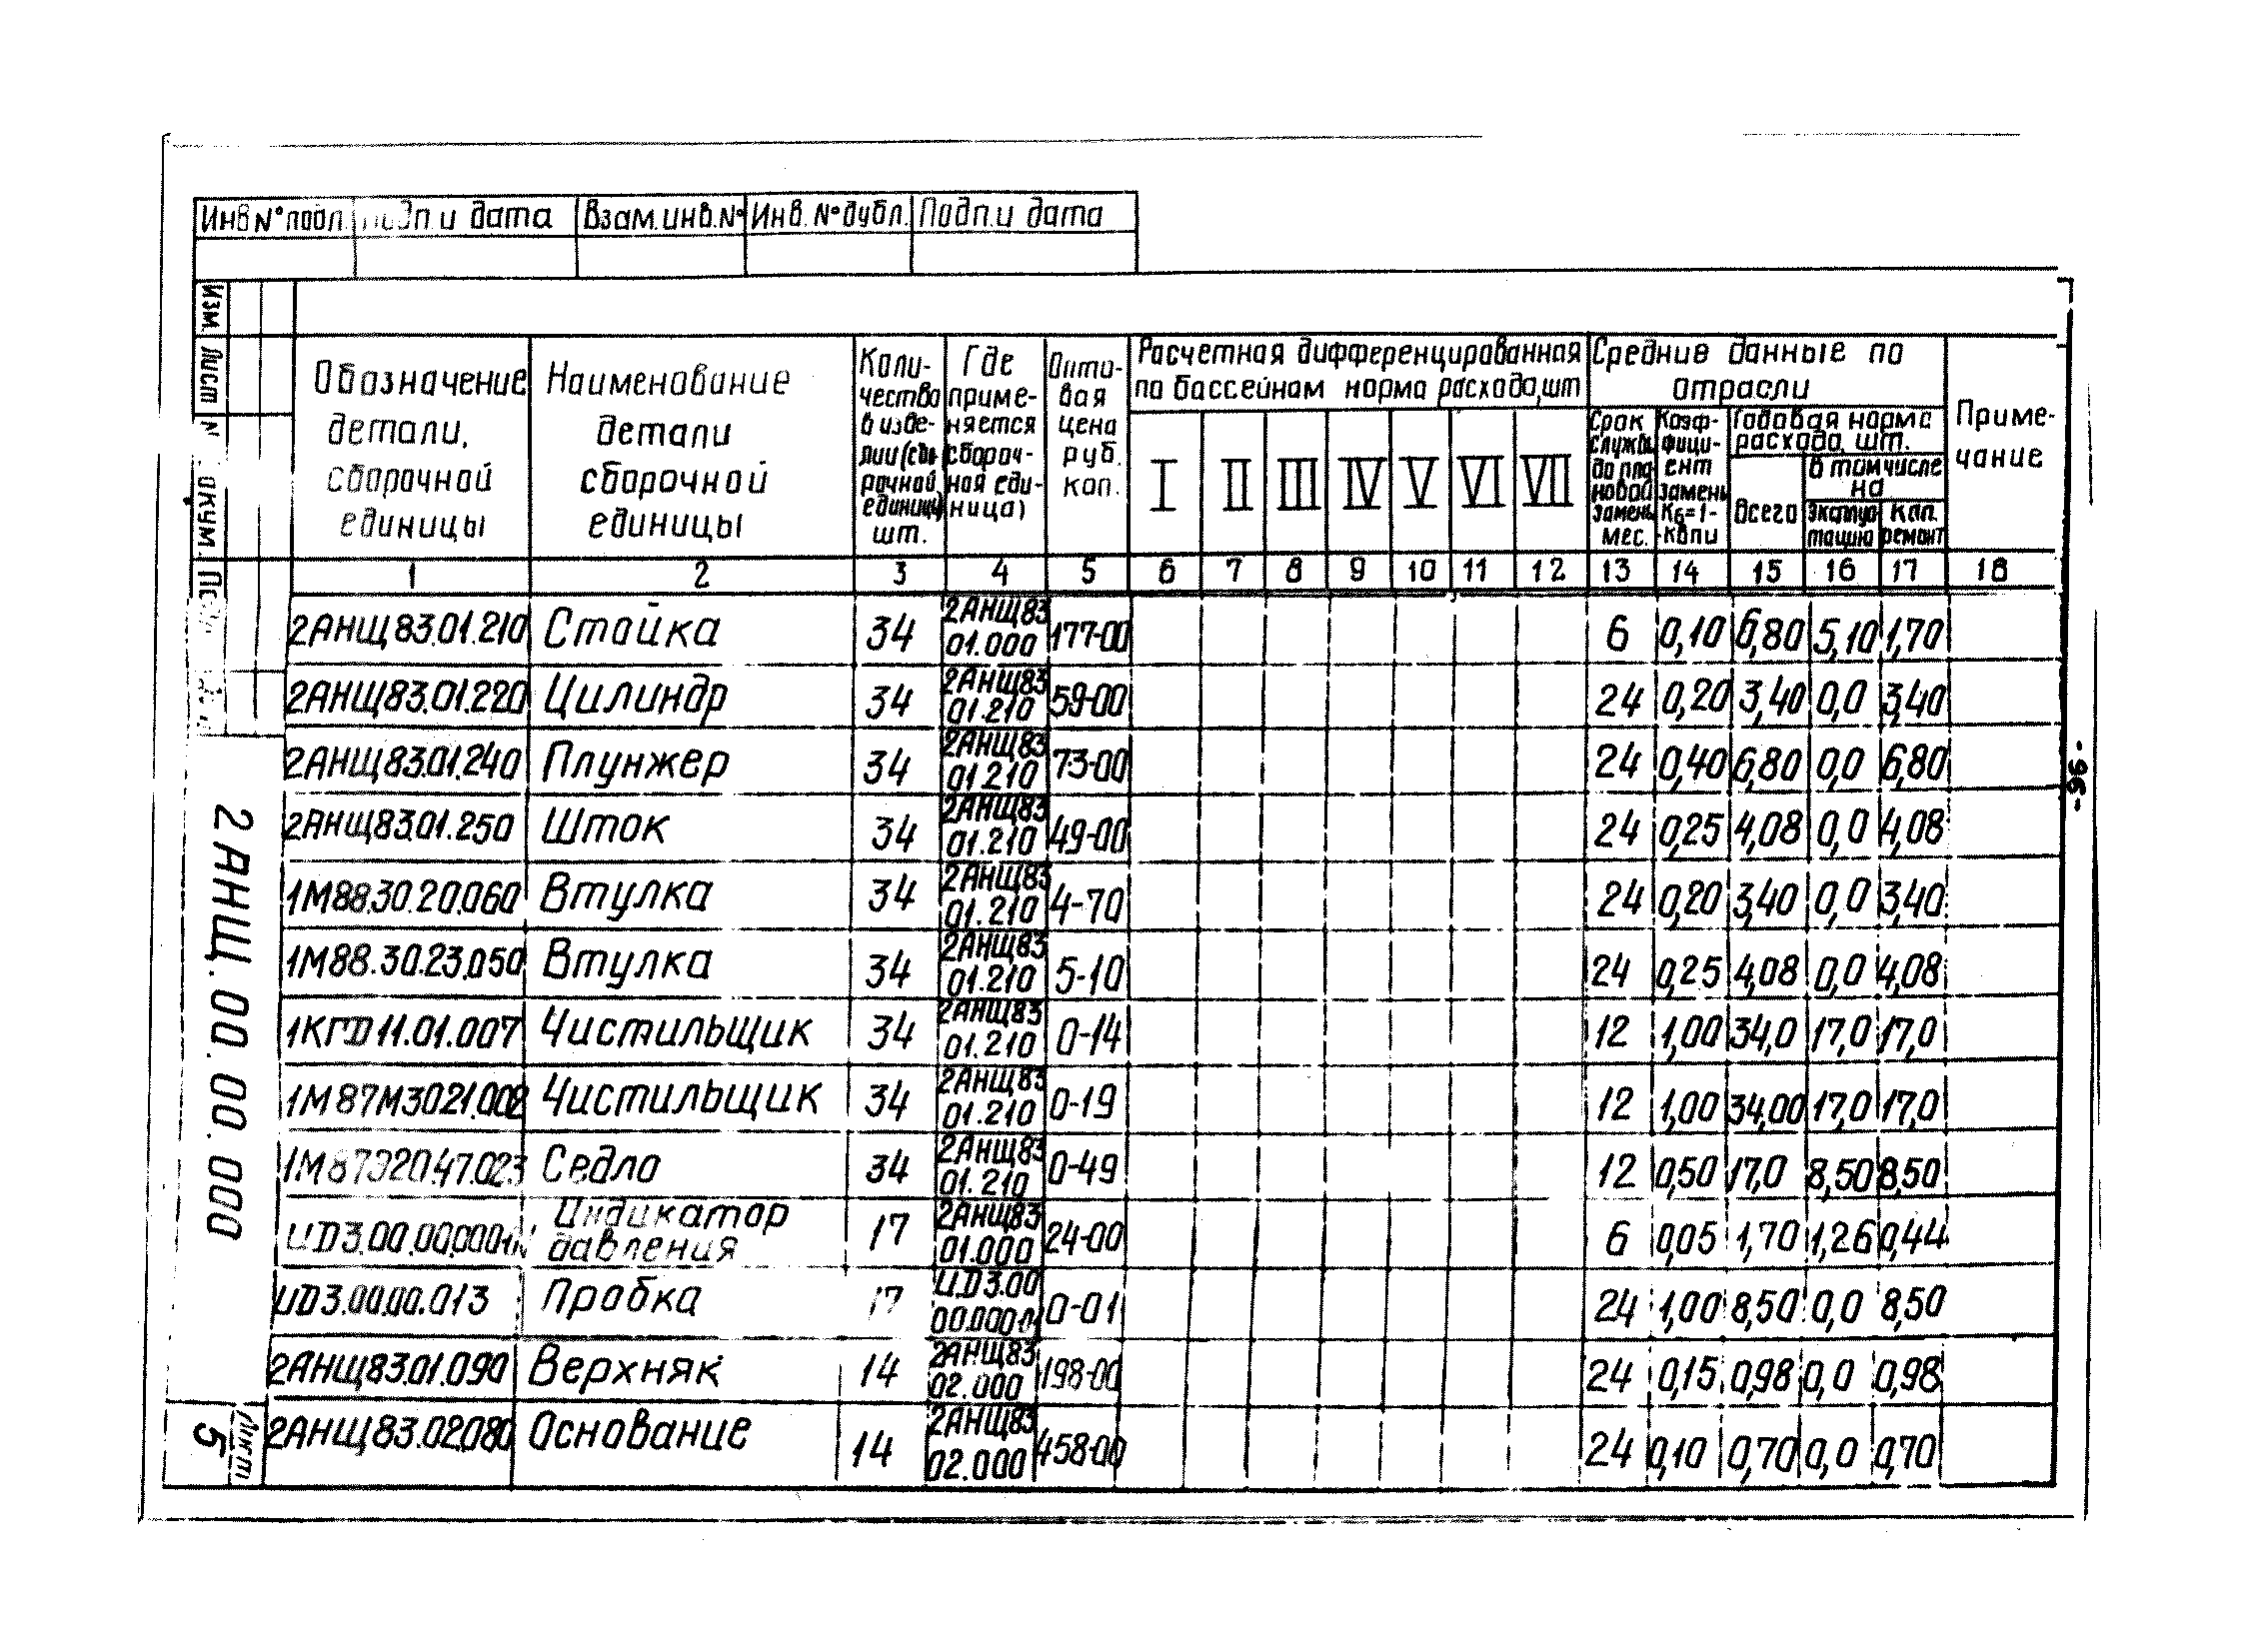 Инв N° подл. Подп. и дата Взам. инв. N° Инв. N° дубл. Подп. и дата
Изм. Лист
2АНЩ. 00. 00. 000
Лист
5
-96-
Обозначение детали, сборочной единицы
Наименование детали сборочной единицы
Количество в изделии (сборочной единицы) шт.
Где применяется (сборочная единица)
Оптовая цена руб. коп.
Расчетная дифференцированная по бассейнам норма расхода, шт
I II III IV V VI VII
Средние данные по отрасли
Срок службы до плановой замены мес.
Коэффициент замены Kб=1-
Годовая норма расхода, шт.
Всего
в том числе на
Кап. ремонт
Примечание
1 2 3 4 5 6 7 8 9 10 11 12 13 14 15 16 17 18
2АНЩ83.01.210 Стойка 34 2АНЩ83 01.000 177-00 6 0,10 6,80 5,10 1,70
2АНЩ83.01.220 Цилиндр 34 2АНЩ83 01.210 59-00 24 0,20 3,40 0,0 3,40
2АНЩ83.01.240 Плунжер 34 2АНЩ83 01.210 73-00 24 0,40 6,80 0,0 6,80
2АНЩ83.01.250 Шток 34 2АНЩ83 01.210 49-00 24 0,25 4,08 0,0 4,08
1М88.30.20.060 Втулка 34 2АНЩ83 01.210 4-70 24 0,20 3,40 0,0 3,40
1М88.30.23.050 Втулка 34 2АНЩ83 01.210 5-10 24 0,25 4,08 0,0 4,08
1КГD11.01.007 Чистильщик 34 2АНЩ83 01.210 0-14 12 1,00 34,0 17,0 17,0
1М87М3021.002 Чистильщик 34 2АНЩ83 01.210 0-19 12 1,00 34,00 17,0 17,0
1М87Э20.47.023 Седло 34 2АНЩ83 01.210 0-49 12 0,50 17,0 8,50 8,50
Индикатор давления 17 2АНЩ83 01.000 24-00 6 0,05 1,70 1,26 0,44
ИD3.00.00.013 Пробка 17 ИD3.00 0-01 24 1,00 8,50 0,0 8,50
2АНЩ83.01.090 Верхняк 14 2АНЩ83 02.000 198-00 24 0,15 0,98 0,0 0,98
2АНЩ83.02.080 Основание 14 2АНЩ83 02.000 458-00 24 0,10 0,70 0,0 0,70